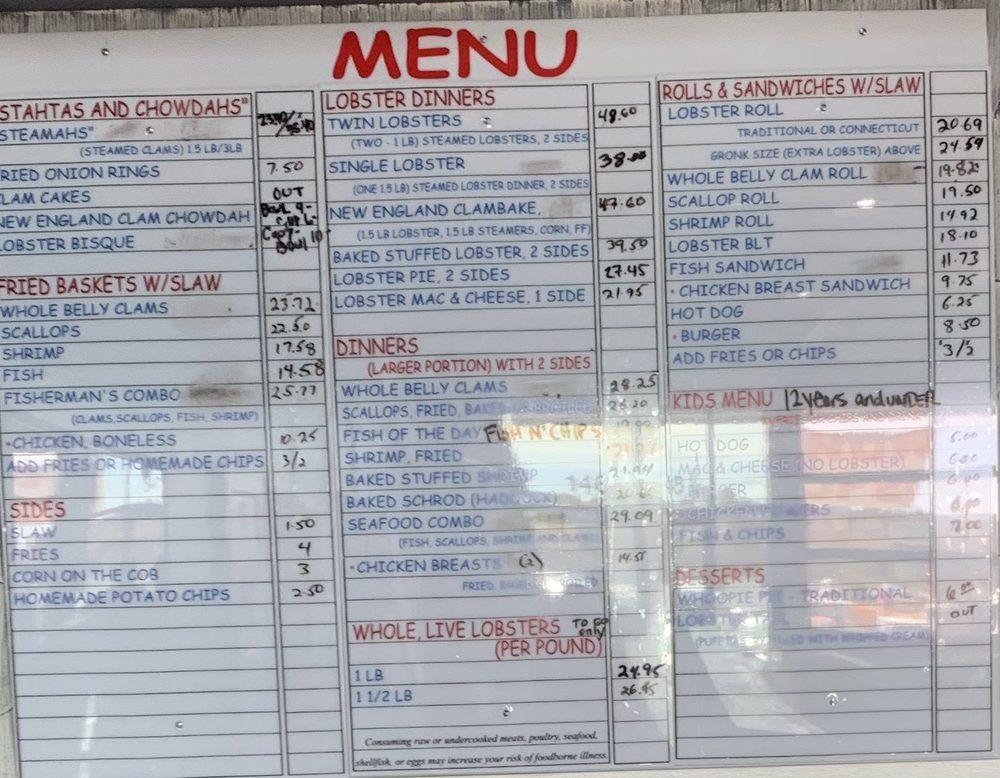 MENU
STAHTAS AND CHOWDAHS"
STEAMAHS"
(STEAMED CLAMS) 1.5 LB/3LB
RIED ONION RINGS 7.50
LAM CAKES OUT
NEW ENGLAND CLAM CHOWDAH Bowl 9-
LOBSTER BISQUE Bowl 10
FRIED BASKETS W/SLAW
WHOLE BELLY CLAMS 23.72
SCALLOPS 22.50
SHRIMP 17.58
FISH 14.58
FISHERMAN'S COMBO 25.77
(CLAMS, SCALLOPS, FISH, SHRIMP)
•CHICKEN, BONELESS 10.25
ADD FRIES OR HOMEMADE CHIPS 3/2
SIDES
SLAW 1.50
FRIES 4
CORN ON THE COB 3
HOMEMADE POTATO CHIPS 2.50
LOBSTER DINNERS
TWIN LOBSTERS 48.60
(TWO - 1 LB) STEAMED LOBSTERS, 2 SIDES
SINGLE LOBSTER 38.00
(ONE 1.5 LB) STEAMED LOBSTER DINNER, 2 SIDES
NEW ENGLAND CLAMBAKE, 47.60
(1.5 LB LOBSTER, 1.5 LB STEAMERS, CORN, FF)
BAKED STUFFED LOBSTER, 2 SIDES 39.50
LOBSTER PIE, 2 SIDES 27.45
LOBSTER MAC & CHEESE, 1 SIDE 21.95
DINNERS
(LARGER PORTION) WITH 2 SIDES
WHOLE BELLY CLAMS 28.25
SCALLOPS, FRIED, BAKED 26.20
FISH OF THE DAY FISH N' CHIPS
SHRIMP, FRIED
BAKED STUFFED SHRIMP 21.94
BAKED SCHROD (HADDOCK)
SEAFOOD COMBO 29.09
(FISH, SCALLOPS, SHRIMP AND CLAMS)
•CHICKEN BREASTS (2) 14.51
FRIED,
WHOLE, LIVE LOBSTERS TO GO only
(PER POUND)
1 LB 24.95
1 1/2 LB 26.95
Consuming raw or undercooked meats, poultry, seafood,
shellfish, or eggs may increase your risk of foodborne illness.
ROLLS & SANDWICHES W/SLAW
LOBSTER ROLL
TRADITIONAL OR CONNECTICUT 20.69
GRONK SIZE (EXTRA LOBSTER) ABOVE 24.59
WHOLE BELLY CLAM ROLL 19.82
SCALLOP ROLL 19.50
SHRIMP ROLL 14.92
LOBSTER BLT 18.10
FISH SANDWICH 11.73
•CHICKEN BREAST SANDWICH 9.75
HOT DOG 6.25
•BURGER 8.50
ADD FRIES OR CHIPS 3/2
KIDS MENU 12 years and UNDER
HOT DOG 5.00
MAC & CHEESE (NO LOBSTER)
BURGER
CHICKEN FINGERS
FISH & CHIPS 7.00
DESSERTS
WHOOPIE PIE - TRADITIONAL
LOBSTER TAIL OUT
FILLED WITH WHIPPED CREAM)